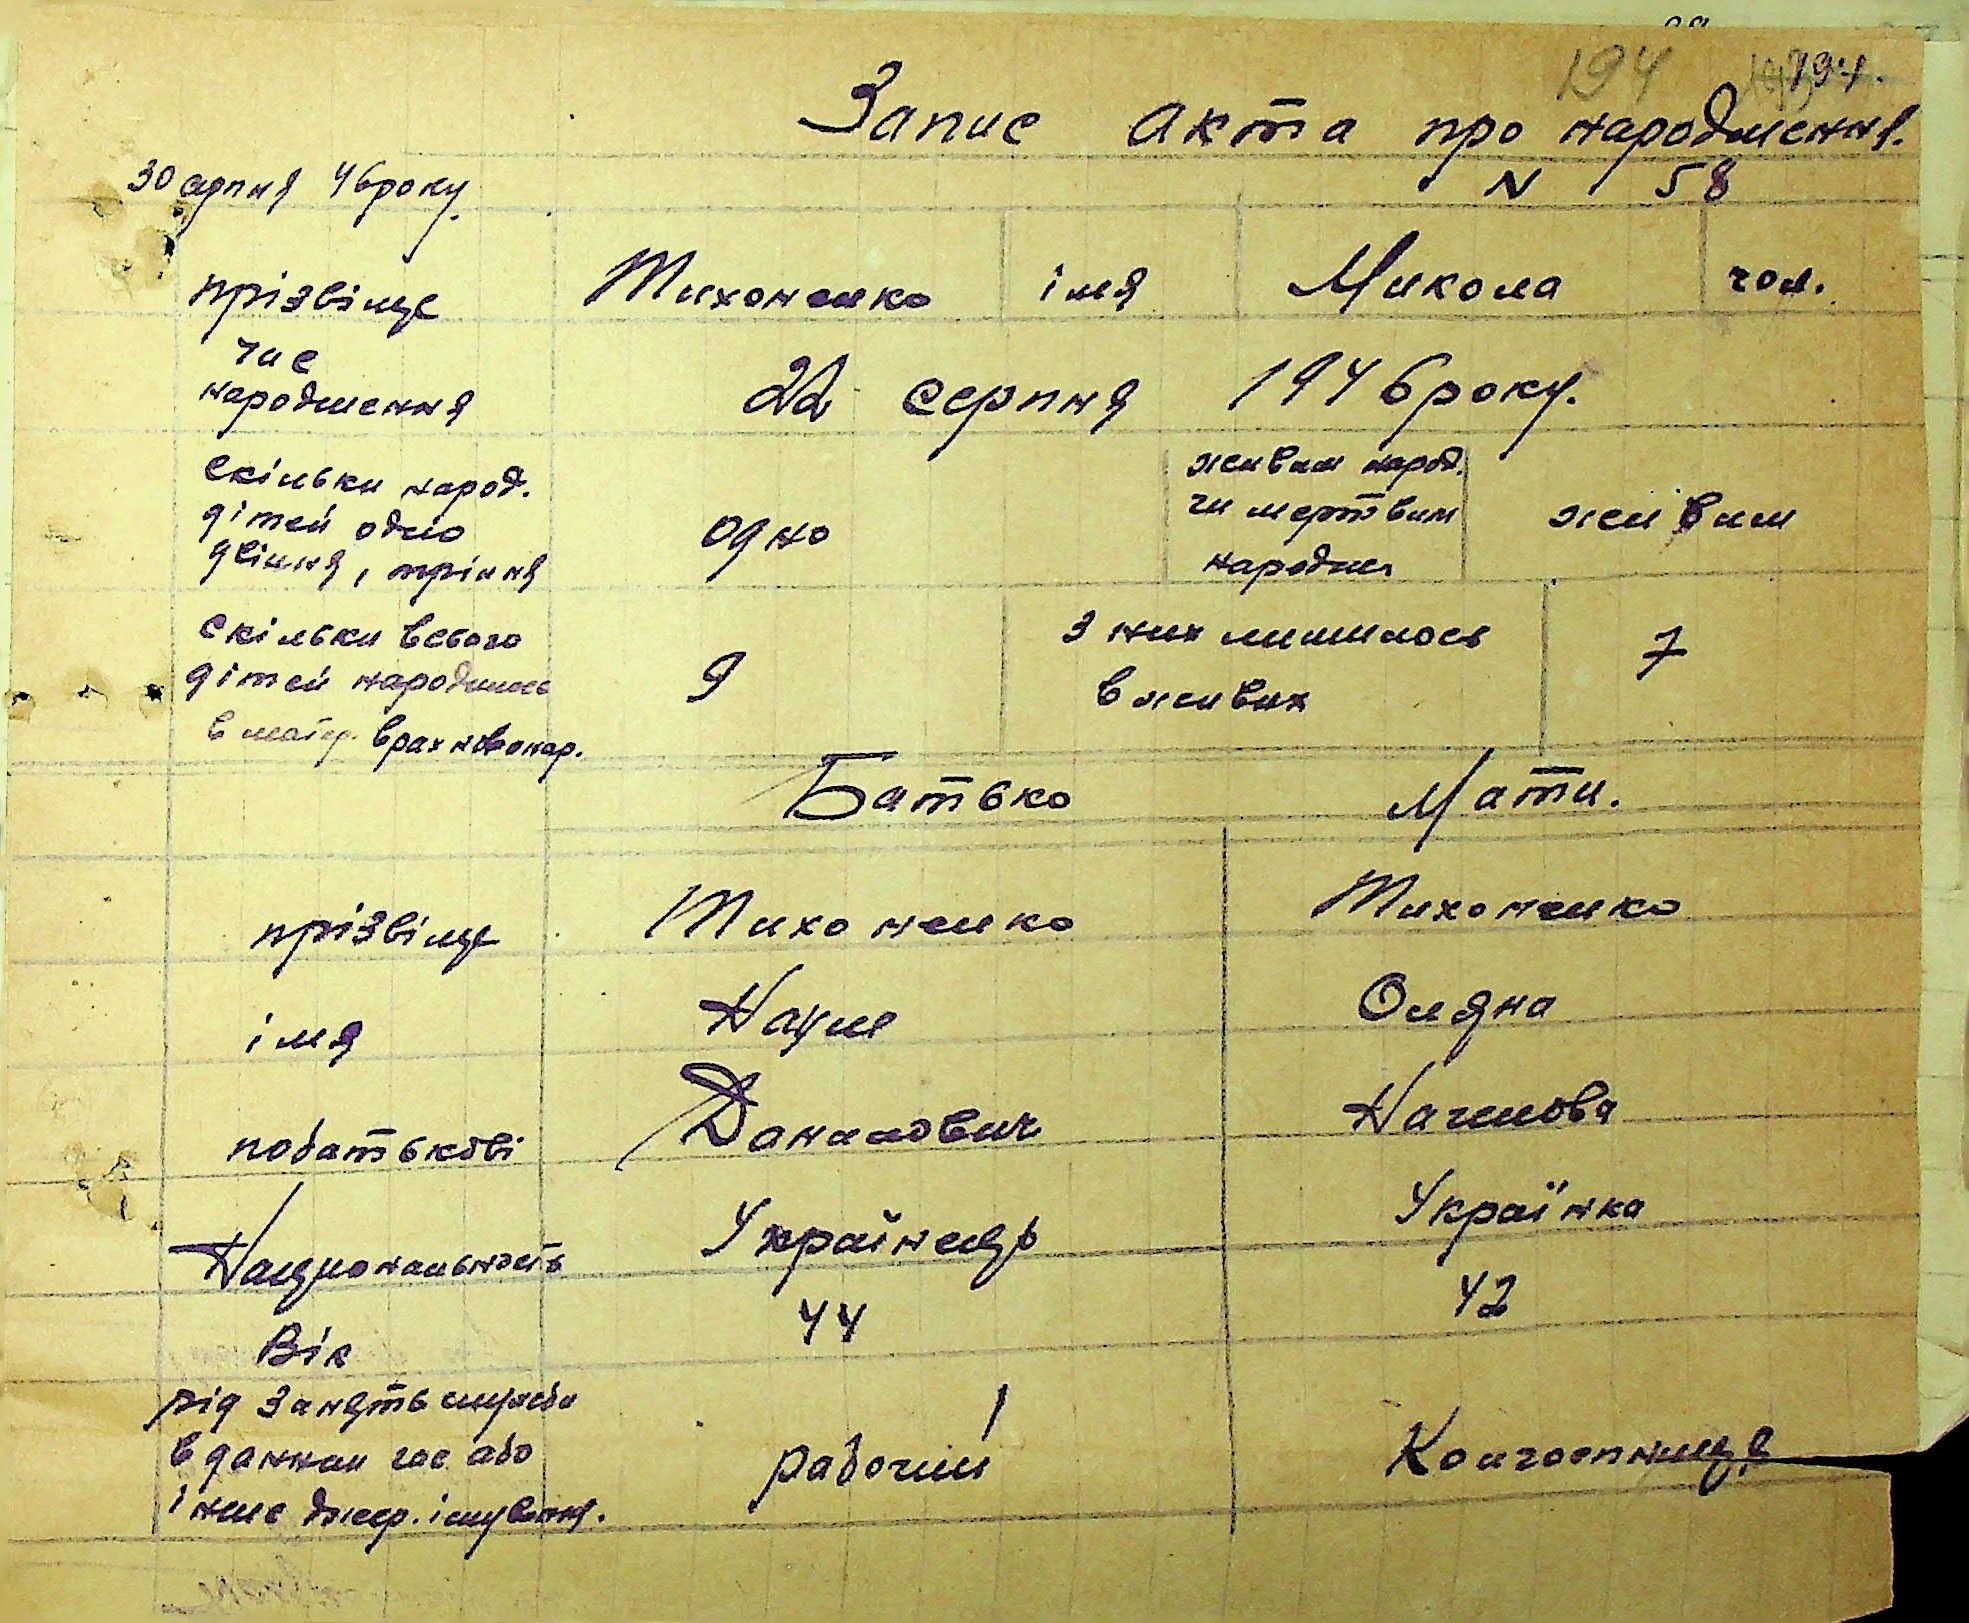 194
Запис акта про народження.
N 58
30 серпня 46 року.
прізвіще Тихоненко імя Микола чол.
час
народження 22 серпня 1946 року.
скільки народ.
дітей одно
двіння, тріння одно
живим народ.
чи мертвим
народж. живим
скільки всього
дітей народилось
в матер. врах новонар. 9
з них лишилось
в живих 7
Батько Мати.
прізвіще Тихоненко Тихоненко
імя Наум Оляна
побатькові Данилович Наумова
Национальность Українець Українка
Вік 44 42
рід занять служби
в данний час або
інше джер. існування. рабочий Колгоспниця